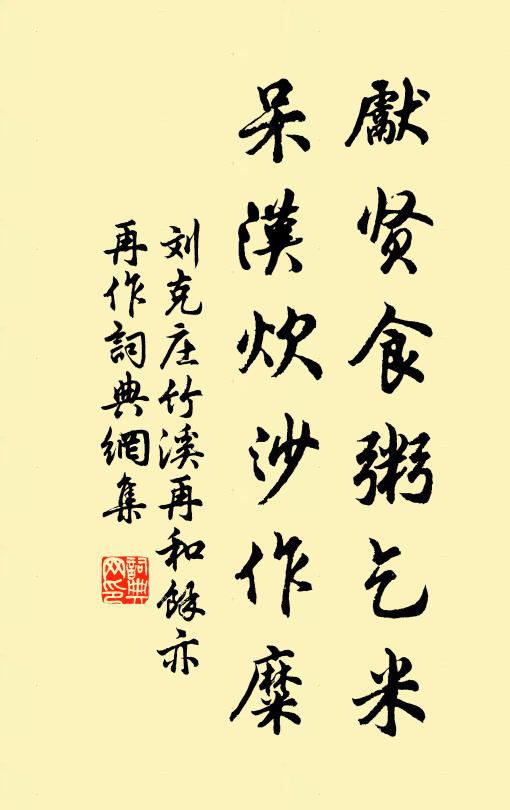 獻贤食粥乞米
呆漢炊沙作糜
刘克庄竹溪再和馀亦
再作詞典網集
詞典网印